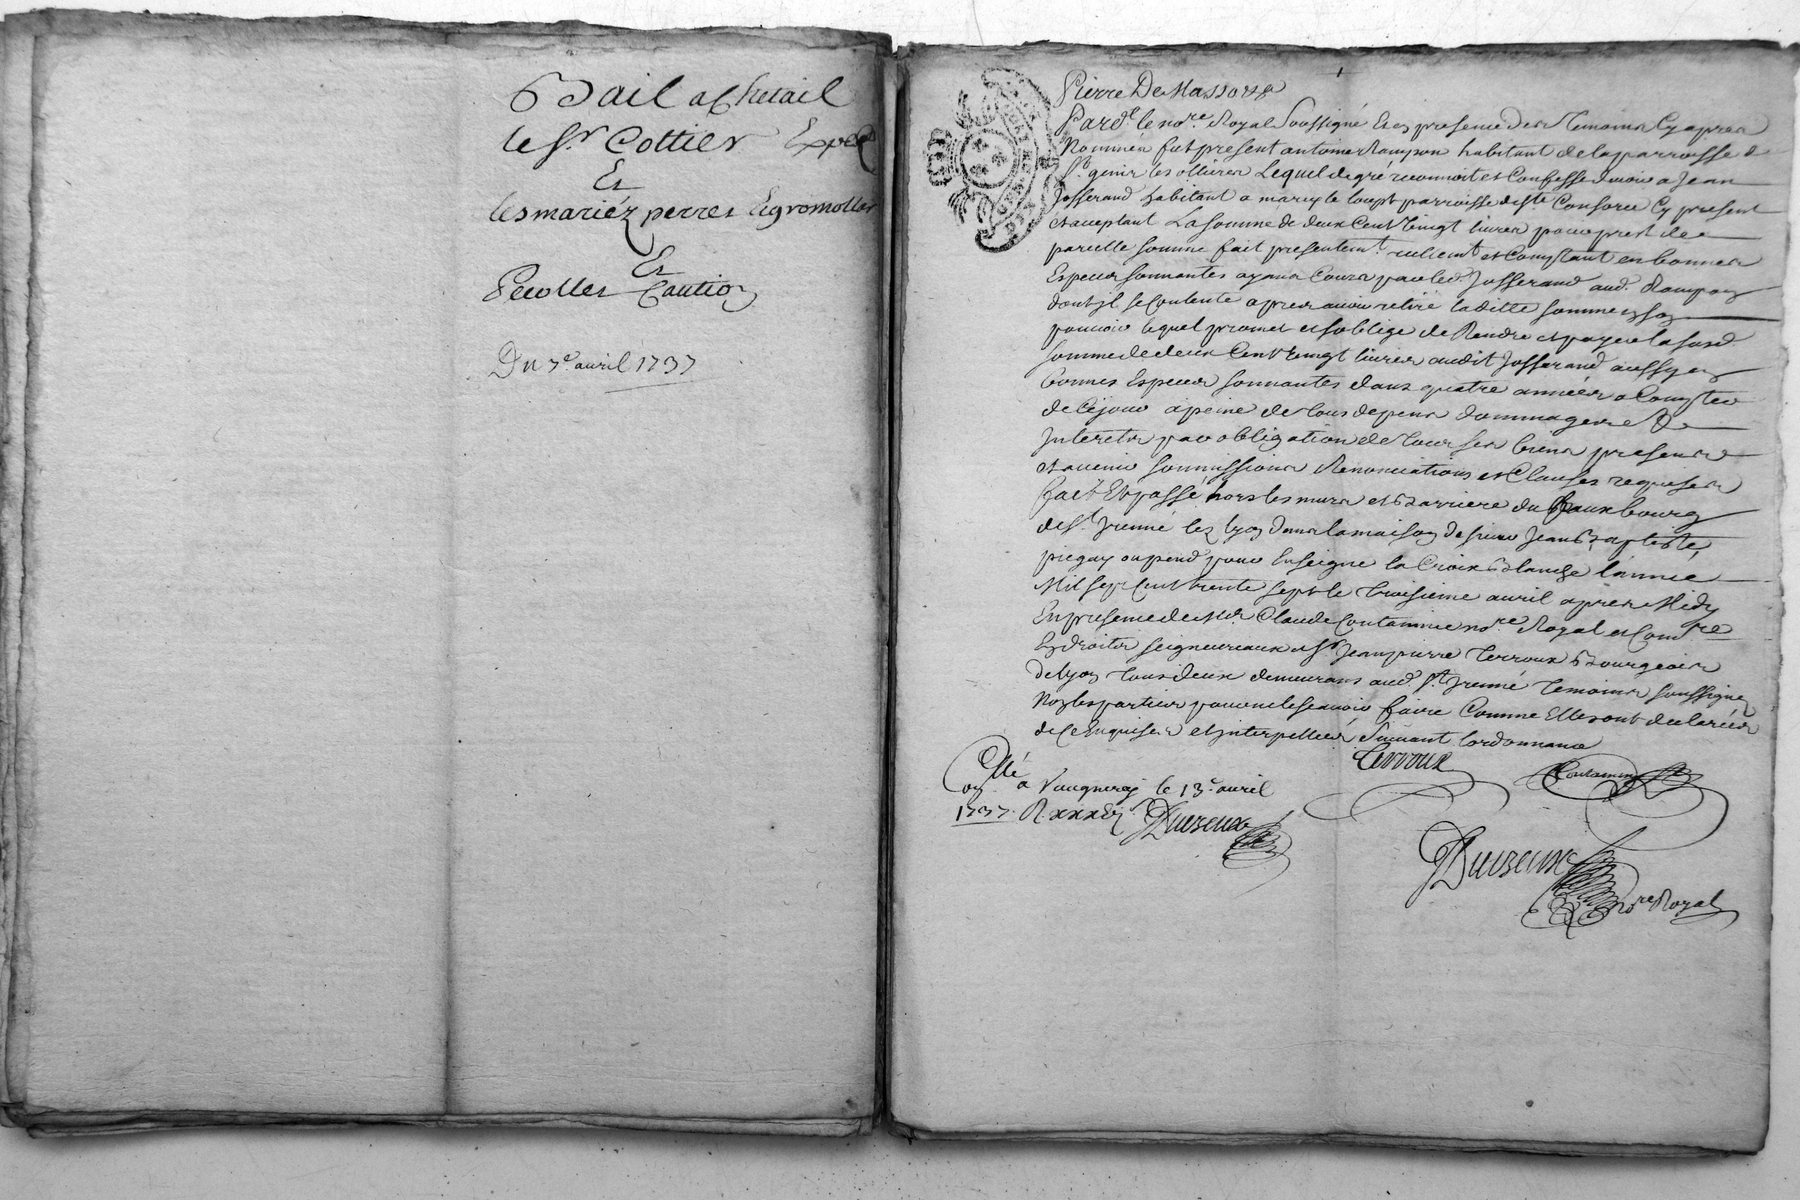 Bail a Chetail
le Sr. Cottier Exped
Et
les mariéz perret Eigromollet
Et
Recollet Caution
Du 7e. avril 1737
Pierre De Masso
Pard.t le no.re Royal Soussigné Et en presence des Temoins Cy apres
Nommés fut present antoine Rampon habitant de la parroisse de
St. genis les ollieres Lequel de gré reconnoit et Confesse devoir a Jean
Josserand habitant a marcy le Loup parroisse de Ste. Consorce Cy present
et acceptant La somme de deux Cent vingt livres pour prest de
pareille somme fait presentem.t reelem.t et Comptant en bonnes
Especes sonnantes ayans Cours par led. Josserand aud. Rampon
dont jl se Contente apres avoir retiré laditte somme en son
pouvoir lequel promet et soblige de Rendre et payer la susd
somme de deux Cent vingt livres audit Josserand aussy en
bonnes Especes sonnantes dans quatre années a Compter
de Cejour a peine de tous depens dommages &
Interets par obligation de tous ses biens presens
et avenir soumissions Renonciations et Clauses requises
fait Et passé hors les murs et Barriere du fauxbourg
de St. Jrenné lez Lyon dans la maison de sieur Jean Baptiste
piegay ou pend pour Enseigne la Croix Blanche lannée
Mil sept Cent trente sept le troisieme avril apres Midy
En presence de Me. Claude Contamine no.re Royal et Com.re
En droits seigneuriaux et Sr. Jean pierre Terroux Bourgeois
de Lyon tous deux demeurans aud. St. Jrenné Temoins soussignez
Non les parties pour ne le sçavoir faire Comme Elles ont declarées
de Ce Enquises et jnterpellées Suivant lordonnance
Terroux
Contamine
Con.llé a Vaugneray le 13e. avril
1737. R. xxx
Duvzeux
no.re Royal